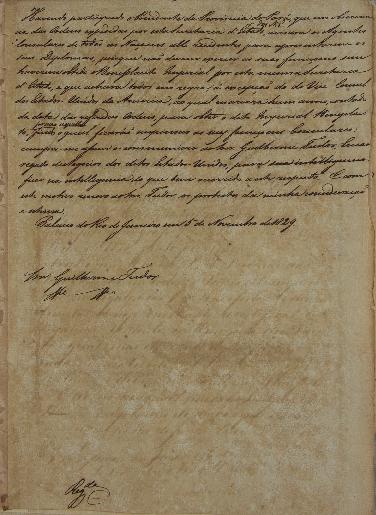 Havendo participado o Presidente da Provincia do Pará, que em observan
cia das Ordens expedidas por esta Secretaria d'Estado, avisára os Agentes
Consulares de todas as Nações alli residentes para apresentarem os
seus Diplomas, porque não devem exercer as suas funcções sem
Imperial por esta mesma Secretaria
d'Estado, e que achára todos em regra, á excepção do do Vice Consul
dos Estados Unidos da America, ao qual marcára hum anno, contado
da data das referidas Ordens, para obter o dito Imperial Beneplaci
to, findo o qual ficarião suspensas as suas funcções Consulares:
cumpre me assim o communicar ao Snr. Guilherme Tudor, Encar
regado de Negocios dos ditos Estados Unidos, para sua intelligencia
fico na intelligencia do que houve a este respeito. E com
este motivo renovo ao Snr. Tudor os protestos da minha consideração
e estima.
Palacio do Rio de Janeiro em 5 de Novembro de 1829
Snr. Guilherme Tudor
Reg.da